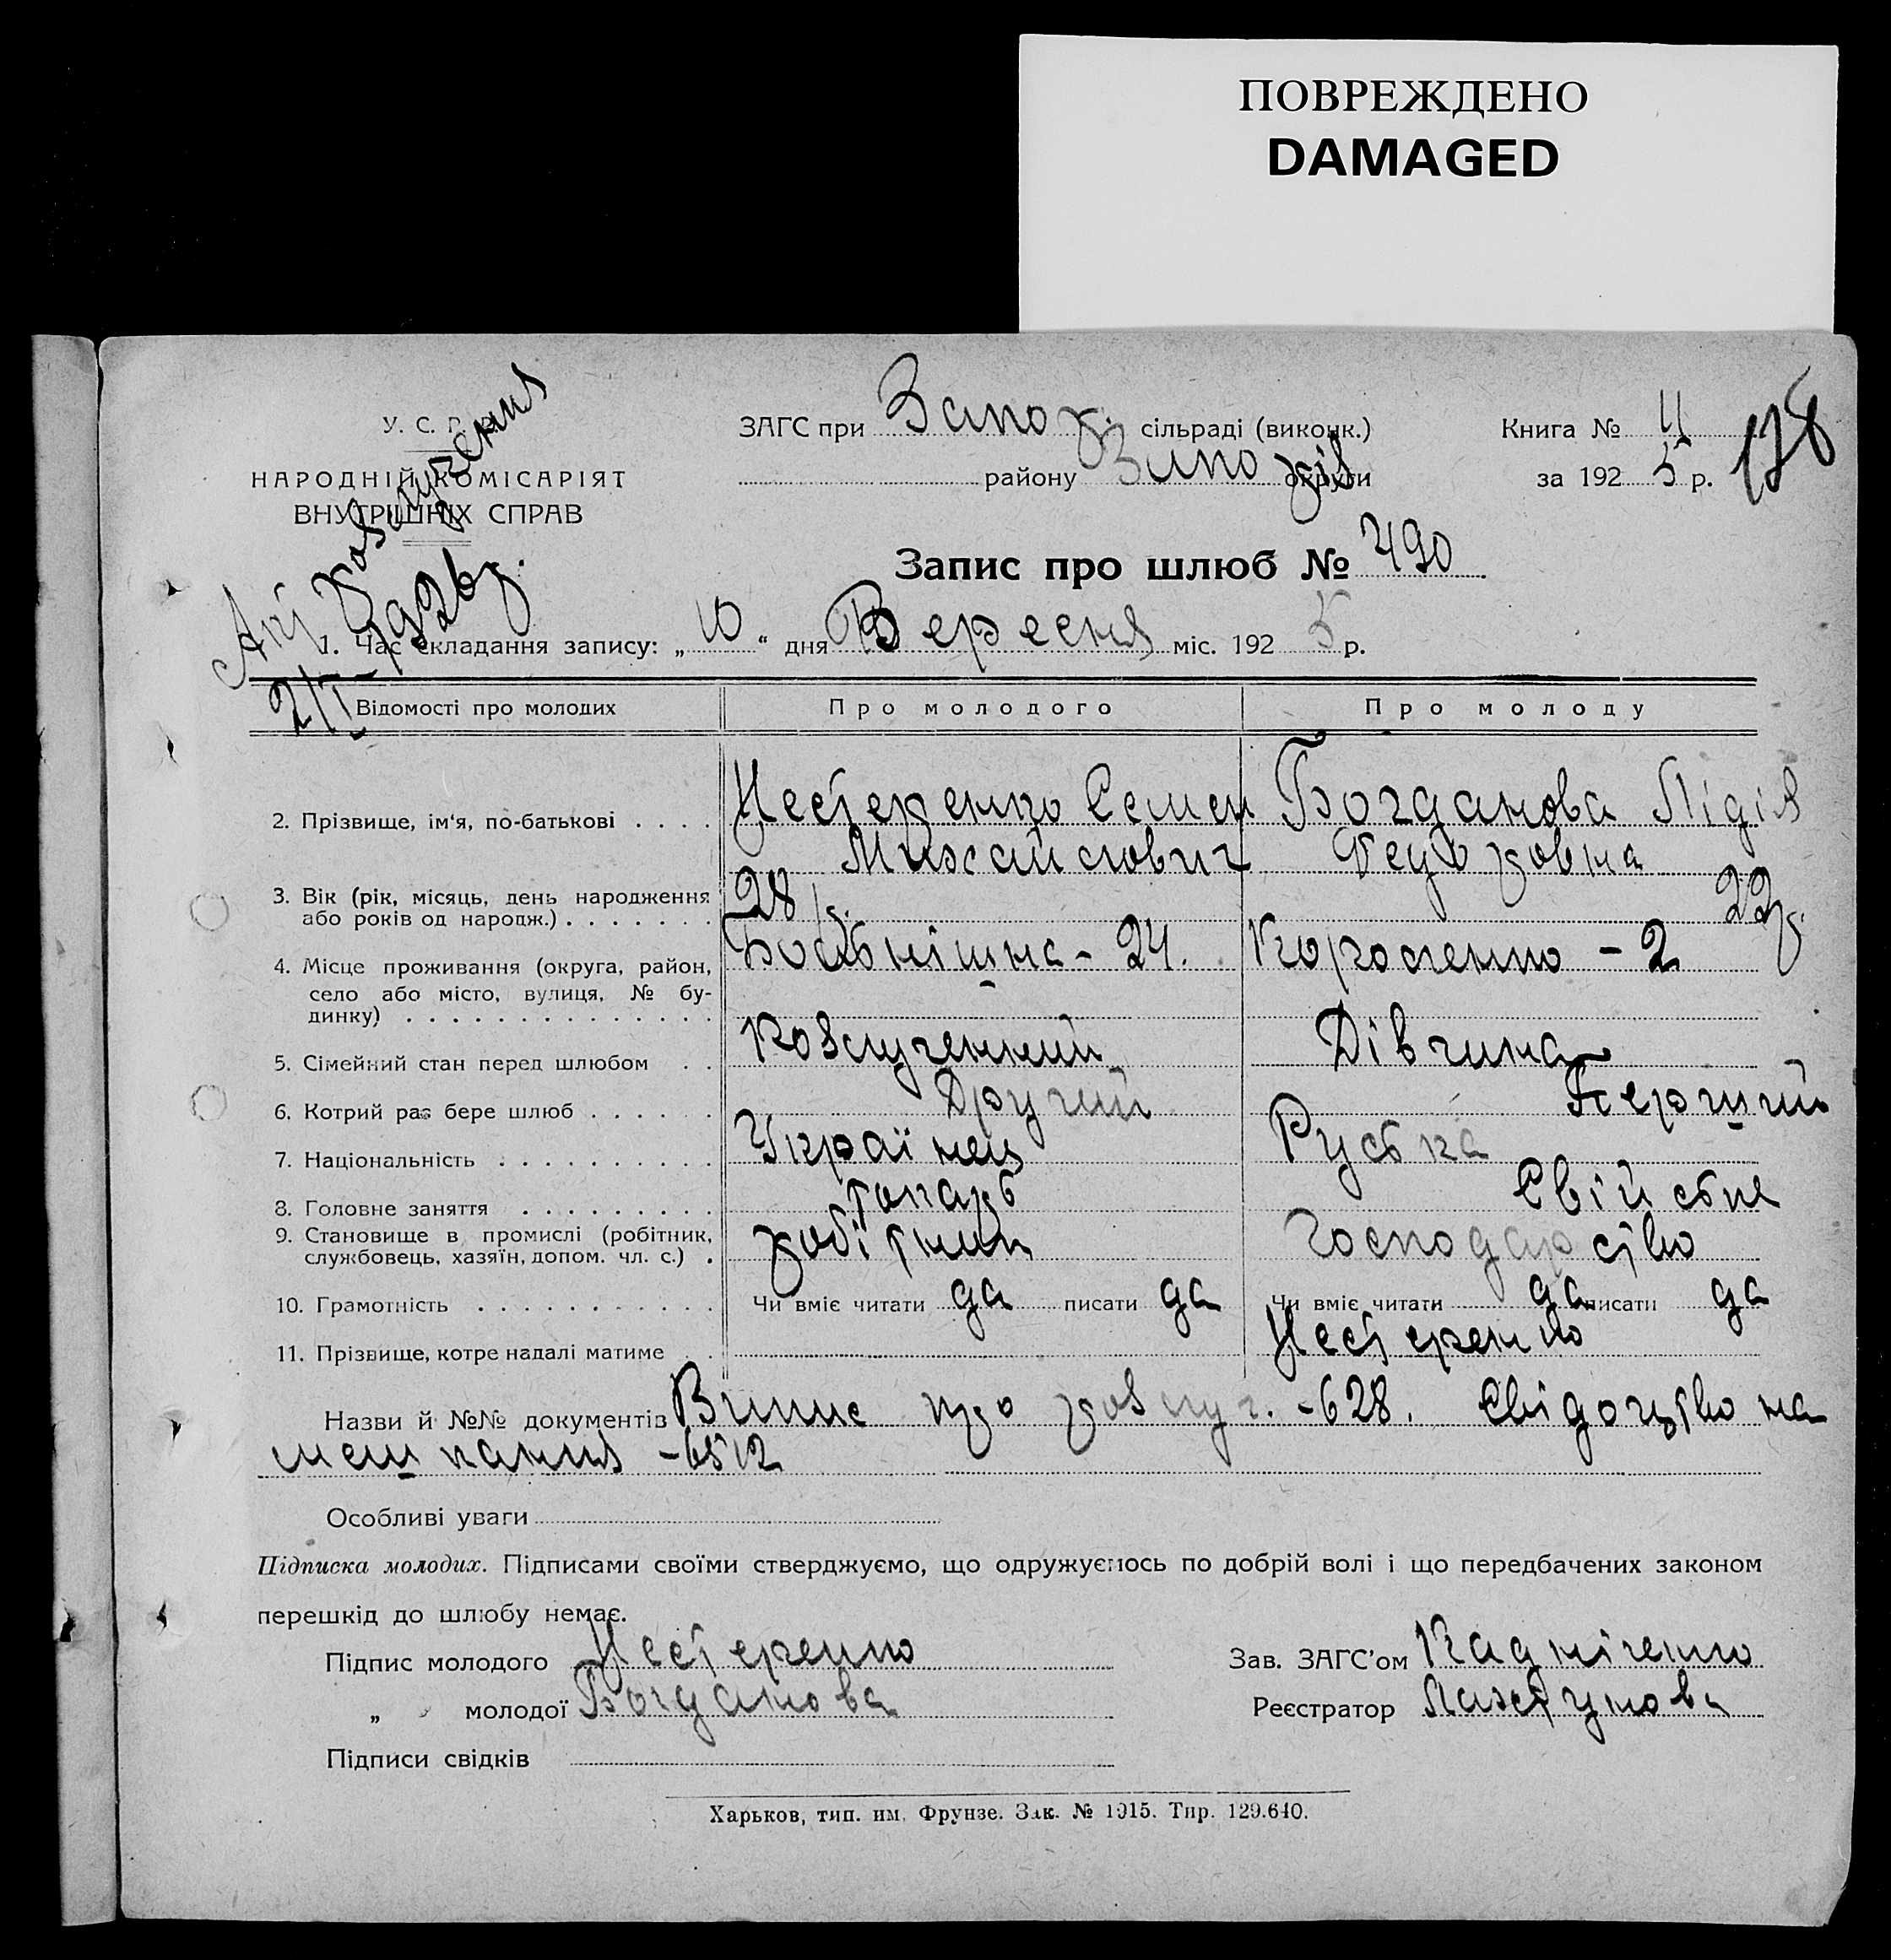 ПОВРЕЖДЕНО
DAMAGED
У. С. Р. Р.
НАРОДНІЙ КОМІСАРІЯТ
ВНУТРІШНІХ СПРАВ
розлучения
2/I - 1926 р.
ЗАГС при Запоріж. сільраді (виконк.)
району Запоріж округи
Книга № 11
за 1925 р.
178
Запис про шлюб № 490
1. Час складання запису: „10“ дня Вересня міс. 1925 р.
Відомості про молодих Про молодого Про молоду
2. Прізвище, ім'я, по-батькові . . . . Нестеренко Семен Михайлович Богданова Лідія Федоровна
3. Вік (рік, місяць, день народження або років од народж.) . . . . . . . 28 р. 22 р.
4. Місце проживання (округа, район, село або місто, вулиця, № будинку) . . . . . . . . . . . . . . Больнішна - 24. Короленко - 2
5. Сімейний стан перед шлюбом . . Розлученний Дівчина
6. Котрий раз бере шлюб . . . . . . Другий Перший
7. Національність . . . . . . . . . . Українец Руська
8. Головне заняття . . . . . . . . . токарь Свійське
9. Становище в промислі (робітник, службовець, хазяїн, допом. чл. с.) . робітник господарство
10. Грамотність . . . . . . . . . . . Чи вміє читати да писати да Чи вміє читати да писати да
11. Прізвище, котре надалі матиме . . Нестеренко
Назви й №№ документів Випис про розлуч. - 628. Свідоцтво на
мешкания - 6512
Особливі уваги
Підписка молодих. Підписами своїми стверджуємо, що одружуємось по добрій волі і що передбачених законом
перешкід до шлюбу немає.
Підпис молодого Нестеренко
„ молодої Богданова
Підписи свідків
Зав. ЗАГС'ом Кадніченко
Реєстратор Лахтунова
Харьков, тип. им. Фрунзе. Зак. № 1915. Тир. 129.640.